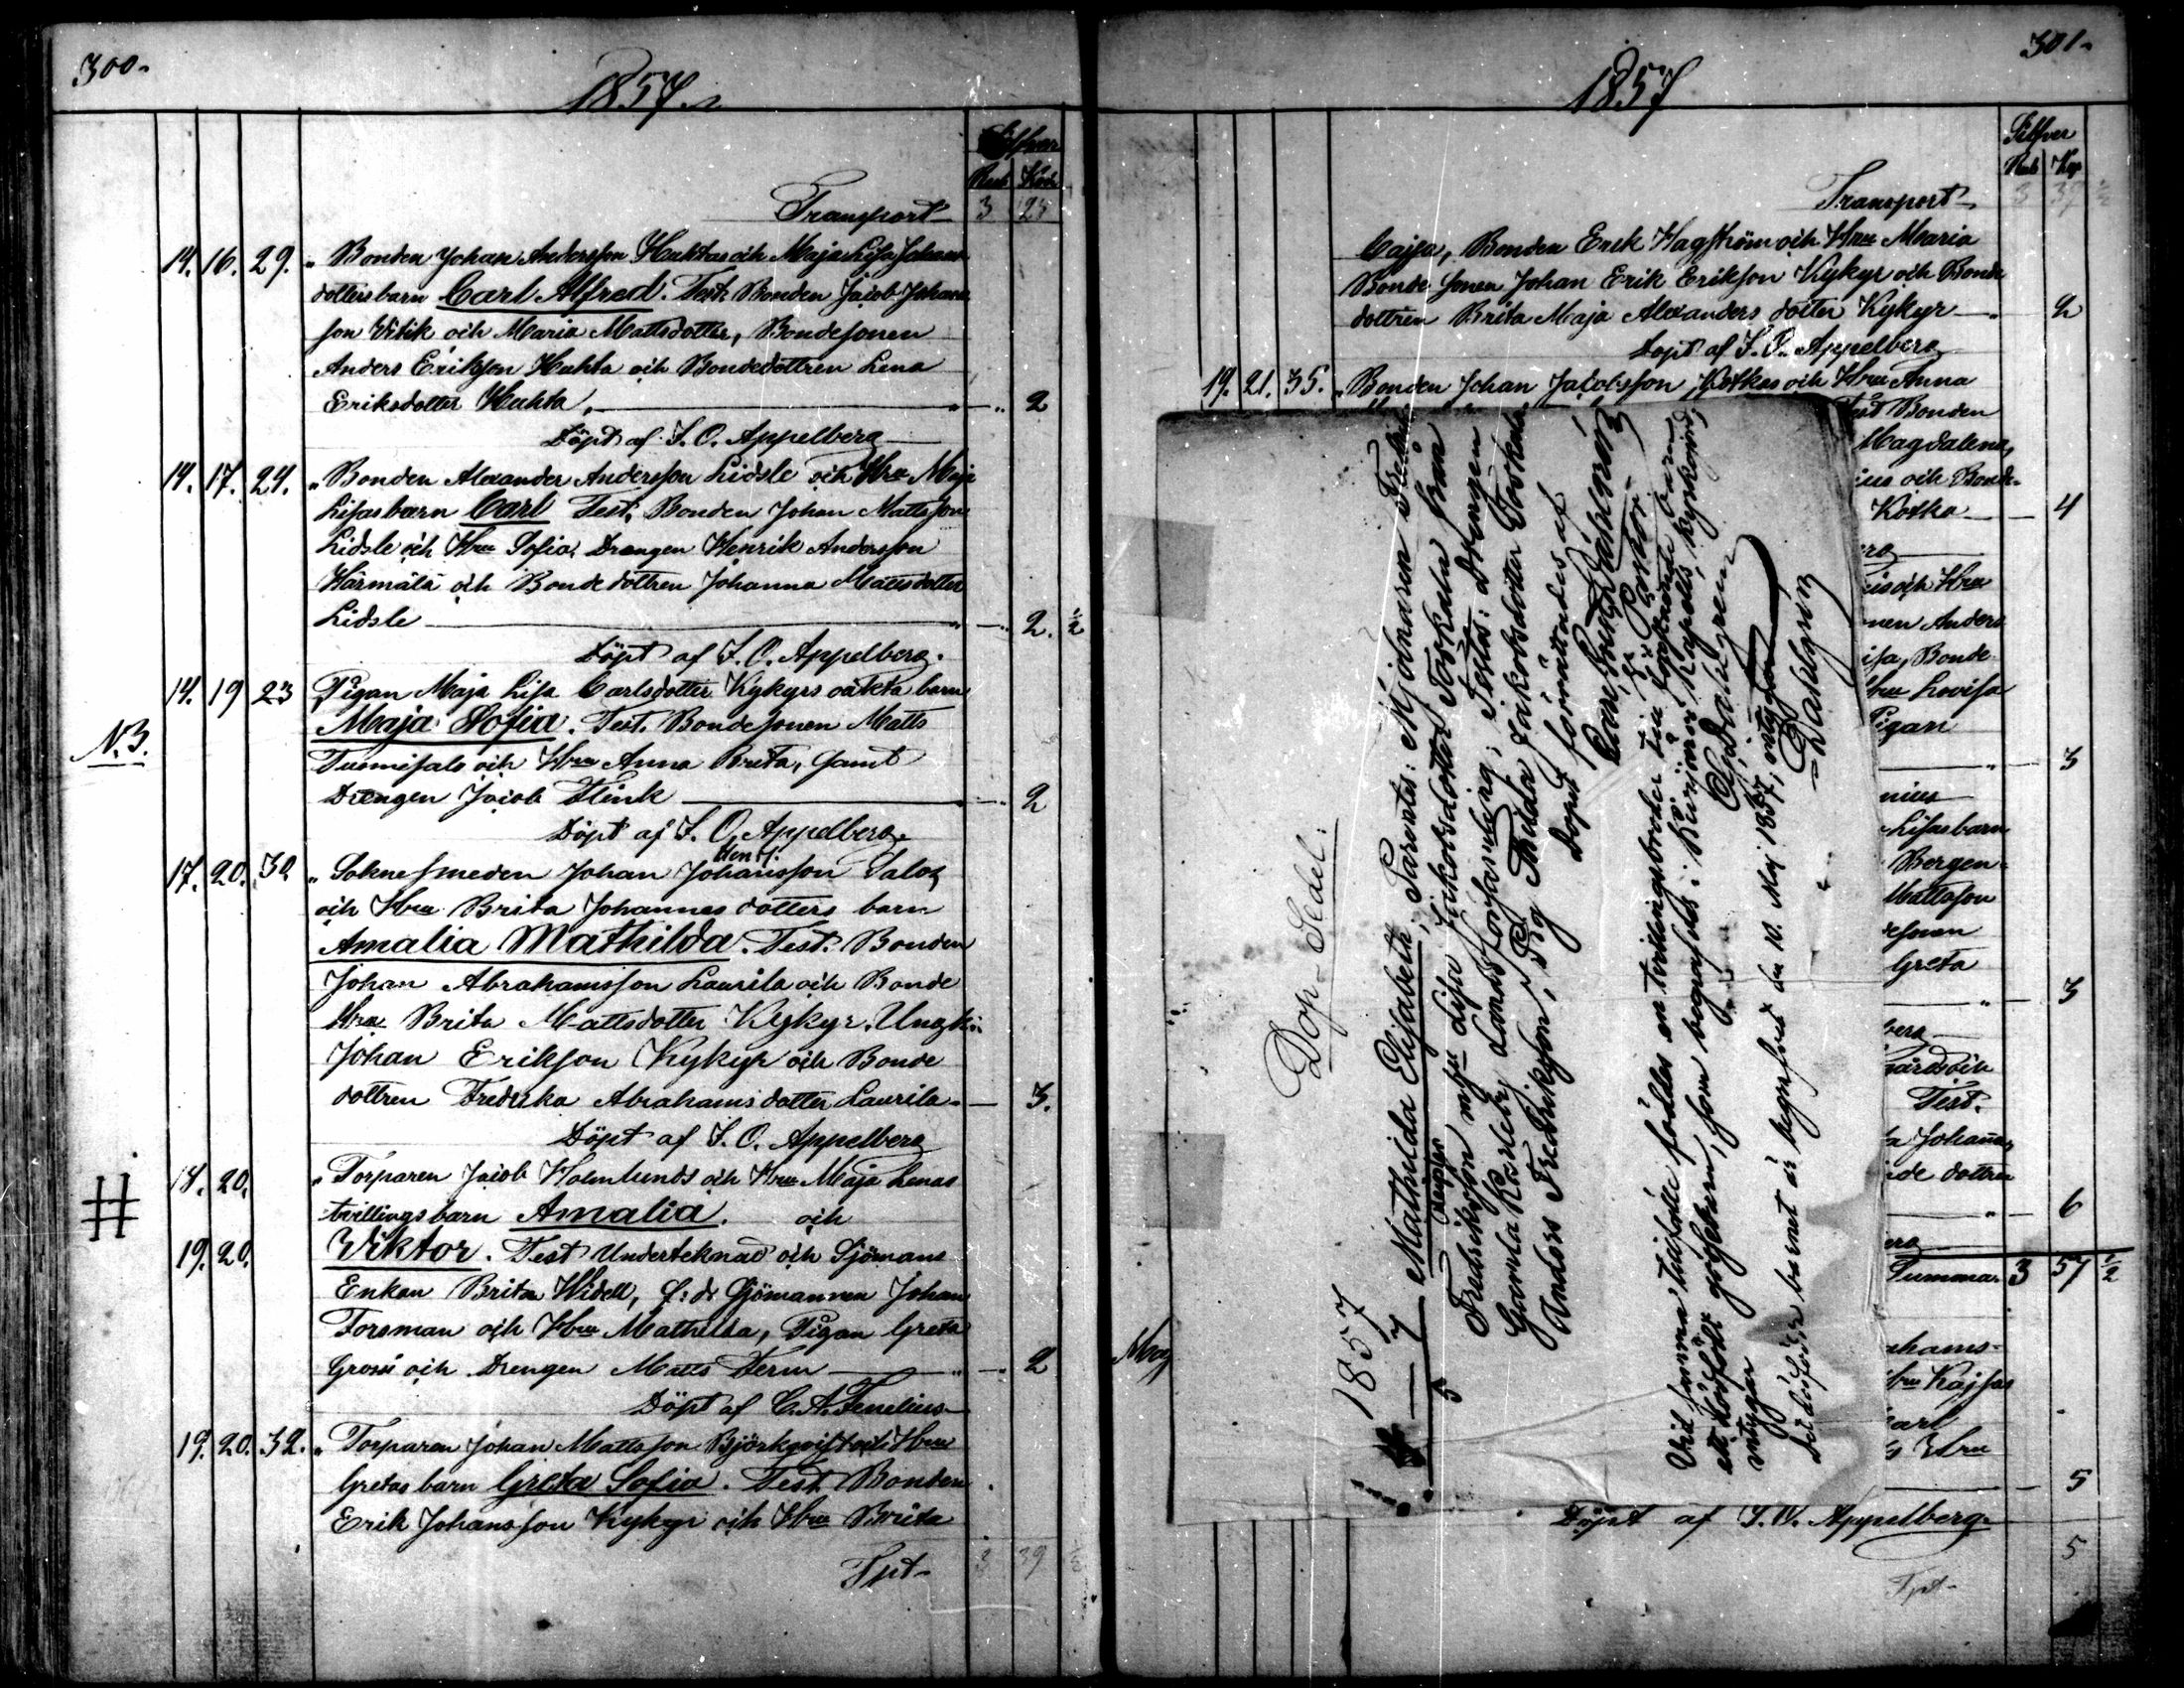 300.
1857.
Silfver
Rub. Kop.
Transport 3 25
14. 16. 29. " Bonden Johan Andersson Huhtas och Maja Lisa Johans
dotters barn Carl Alfred. Test. Bonden Jacob Johans
son Witik och Maria Mattsdotter, Bondesonen
Anders Eriksson Huhta och Bondedottren Lena
Eriksdotter Huhta, " 2
Döpt af J. O. Appelberg
14. 17. 24. " Bonden Alexander Andersson Lidsle och Hru Maja
Lisas barn Carl Test. Bonden Johan Mattsson
Lidsle och Hru Sofia, Drengen Henrik Andersson
Härmälä och Bondedottren Johanna Mattsdotter
Lidsle " 2. ½
Döpt af J. O. Appelberg.
14. 19 23 Pigan Maja Lisa Carlsdotter Kykyrs oäkta barn
N. 3. Maja Sofia. Test. Bondesonen Matts
Tuomisalo och Hru Anna Brita, samt
Drengen Jacob Flink 2
Döpt af J. O. Appelberg.
17. 20. 30 " Soknesmeden Johan Johansson Salos
och Hru Brita Johannes dotters barn
Amalia Mathilda. Test. Bonden
Johan Abrahamsson Laurila och Bonde
Hru Brita Mattsdotter Kykyr. Ungk:
Johan Erikson Kykyr och Bonde
dottren Fredrika Abrahams dotter Laurila. 3.
Döpt af J. O. Appelberg
18. 20. " Torparen Jacob Holmlunds och Hru Maja Lenas
tvillingsbarn Amalia. och
19. 20. Wiktor. Test Underteknad och Sjömans
Enkan Brita Widell, f: d: Sjömannen Johan
Forsman och Hru Mathilda, Pigan Greta
Gross och Drengen Matts Term 2
Döpt af C. A. Fenelius
19. 20. 32. " Torparen Johan Mattsson Björkqvist och Hru
Gretas barn Greta Sofia. Test. Bonden
Erik Johansson Kykyr och Hru Brita
Tpt 3 39 ½
301.
1857
Silfver
Rub Kop
Transport 3 39 ½
Cajsa, Bonden Erik Hagström och Hru Maria
Bonde sonen Johan Erik Erikson Kykyr och Bonde
dottren Brita Maja Alexanders dotter Kykyr 2
Döpt af J. O. Appelberg
19. 21. 35. " Bonden Johan Jacobsson Kotkas och Hru Anna
Test Bonden
Magdalena,
ius och Bonde-
Kotka 4
erg
is och Hru
nen Anders
isa, Bonde
Hru Lovisa
Pigan
3
nius
Lisas barn
Bergen
Mattsson
Greta
3
berg
Test.
Johanna,
de dottren
6
erg
Summa 3 57 ½
ahams-
Hru Kajsas
Carl
Hru
5
Döpt af J. O. Appelberg
5
Tpt
Maj
Dop-Sedel.
1857
5 7 Mathilda Elisabeth, Parentes: Mjölnaren Fredrik
Fredriksson m hu Lisa Jakobsdotter Toskala från
Gamla Karleby Landsförsamling; Testes: Drengen
Anders Fredriksson, Pig Fredrika Jakobsdotter Toskala
Döpt förrättades af
Carl Dahlgren
Pastor
Vid samma tillfälle föddes en tvillingsbroder till förenämnde barn,
ett dödfödt gossebarn, som begrofs i Kapells kyrkogård,
intygar Dahlgren
Det dödfödde barnet är begrafvet den 10. Maj 1857, intygar
Dahlgren